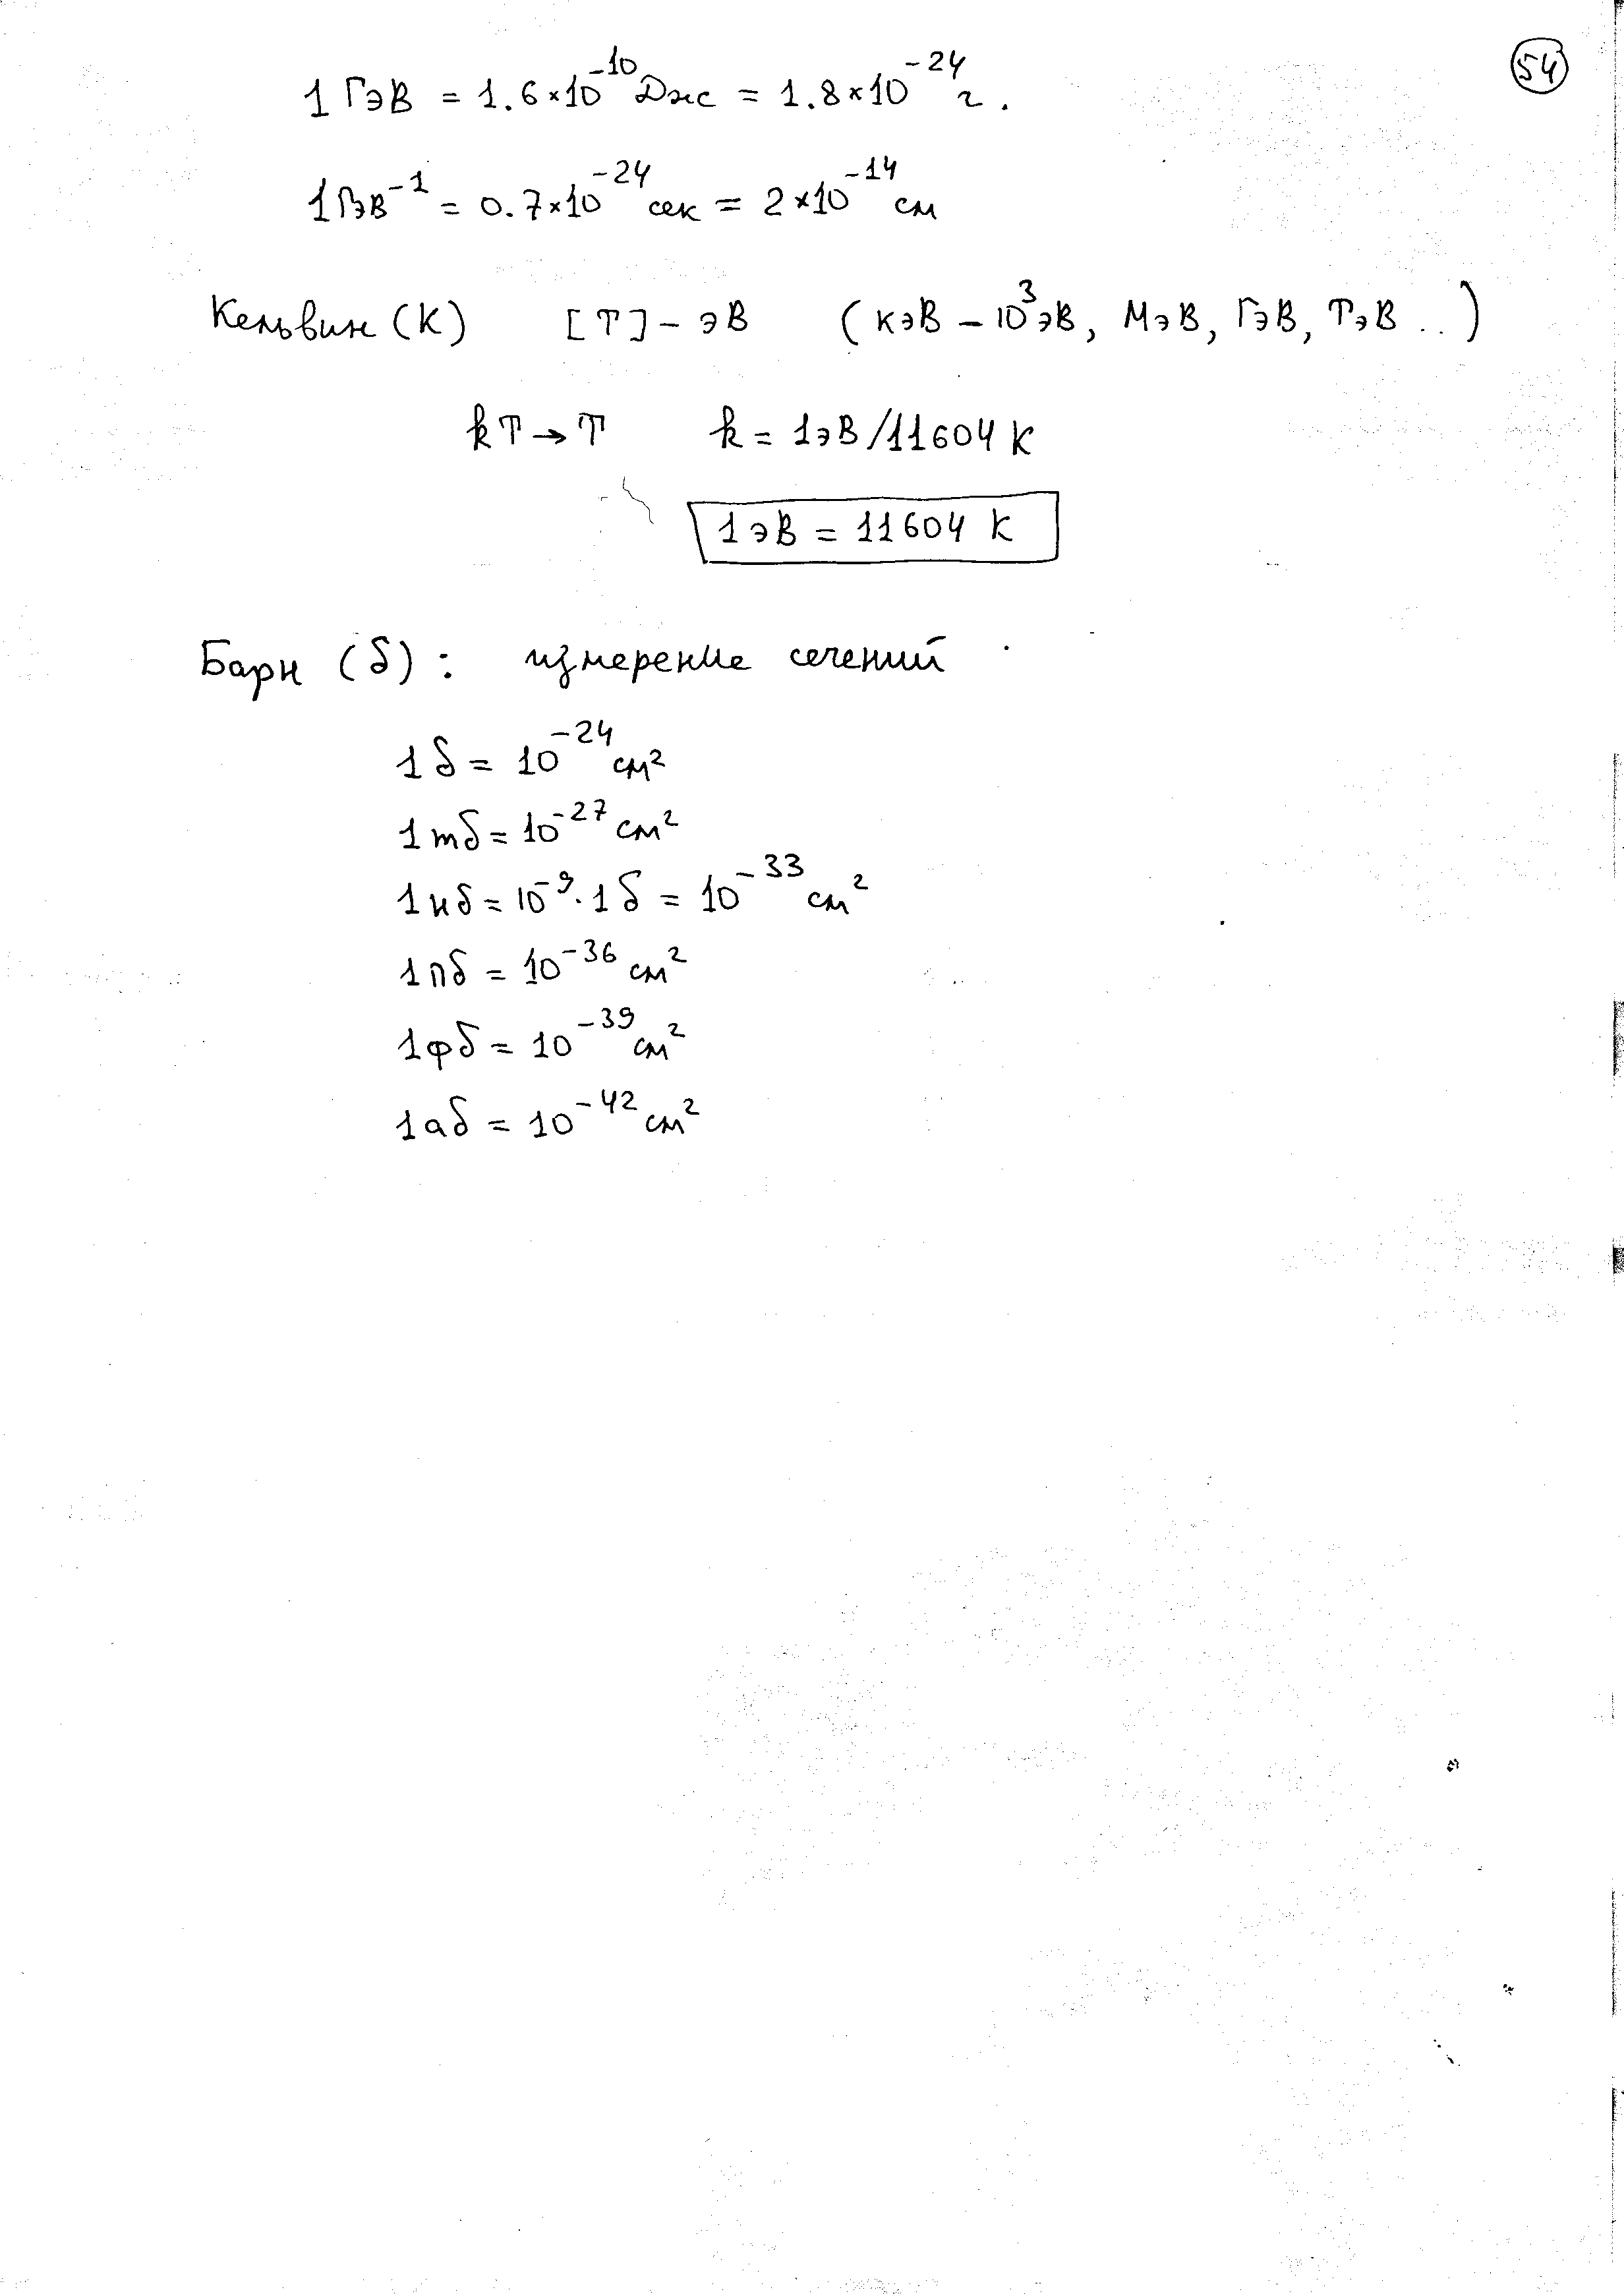 54
1 ГэВ = 1.6×10⁻¹⁰ Дж = 1.8×10⁻²⁴ г.
1 ГэВ⁻¹ = 0.7×10⁻²⁴ сек = 2×10⁻¹⁴ см
Кельвин (К) [T] – эВ (кэВ – 10³эВ, МэВ, ГэВ, ТэВ ..)
kT → T k = 1эВ/11604 К
1 эВ = 11604 К
Барн (б): измерение сечений
1 б = 10⁻²⁴ см²
1 mб = 10⁻²⁷ см²
1 нб = 10⁻⁹ · 1 б = 10⁻³³ см²
1 пб = 10⁻³⁶ см²
1 фб = 10⁻³⁹ см²
1 аб = 10⁻⁴² см²